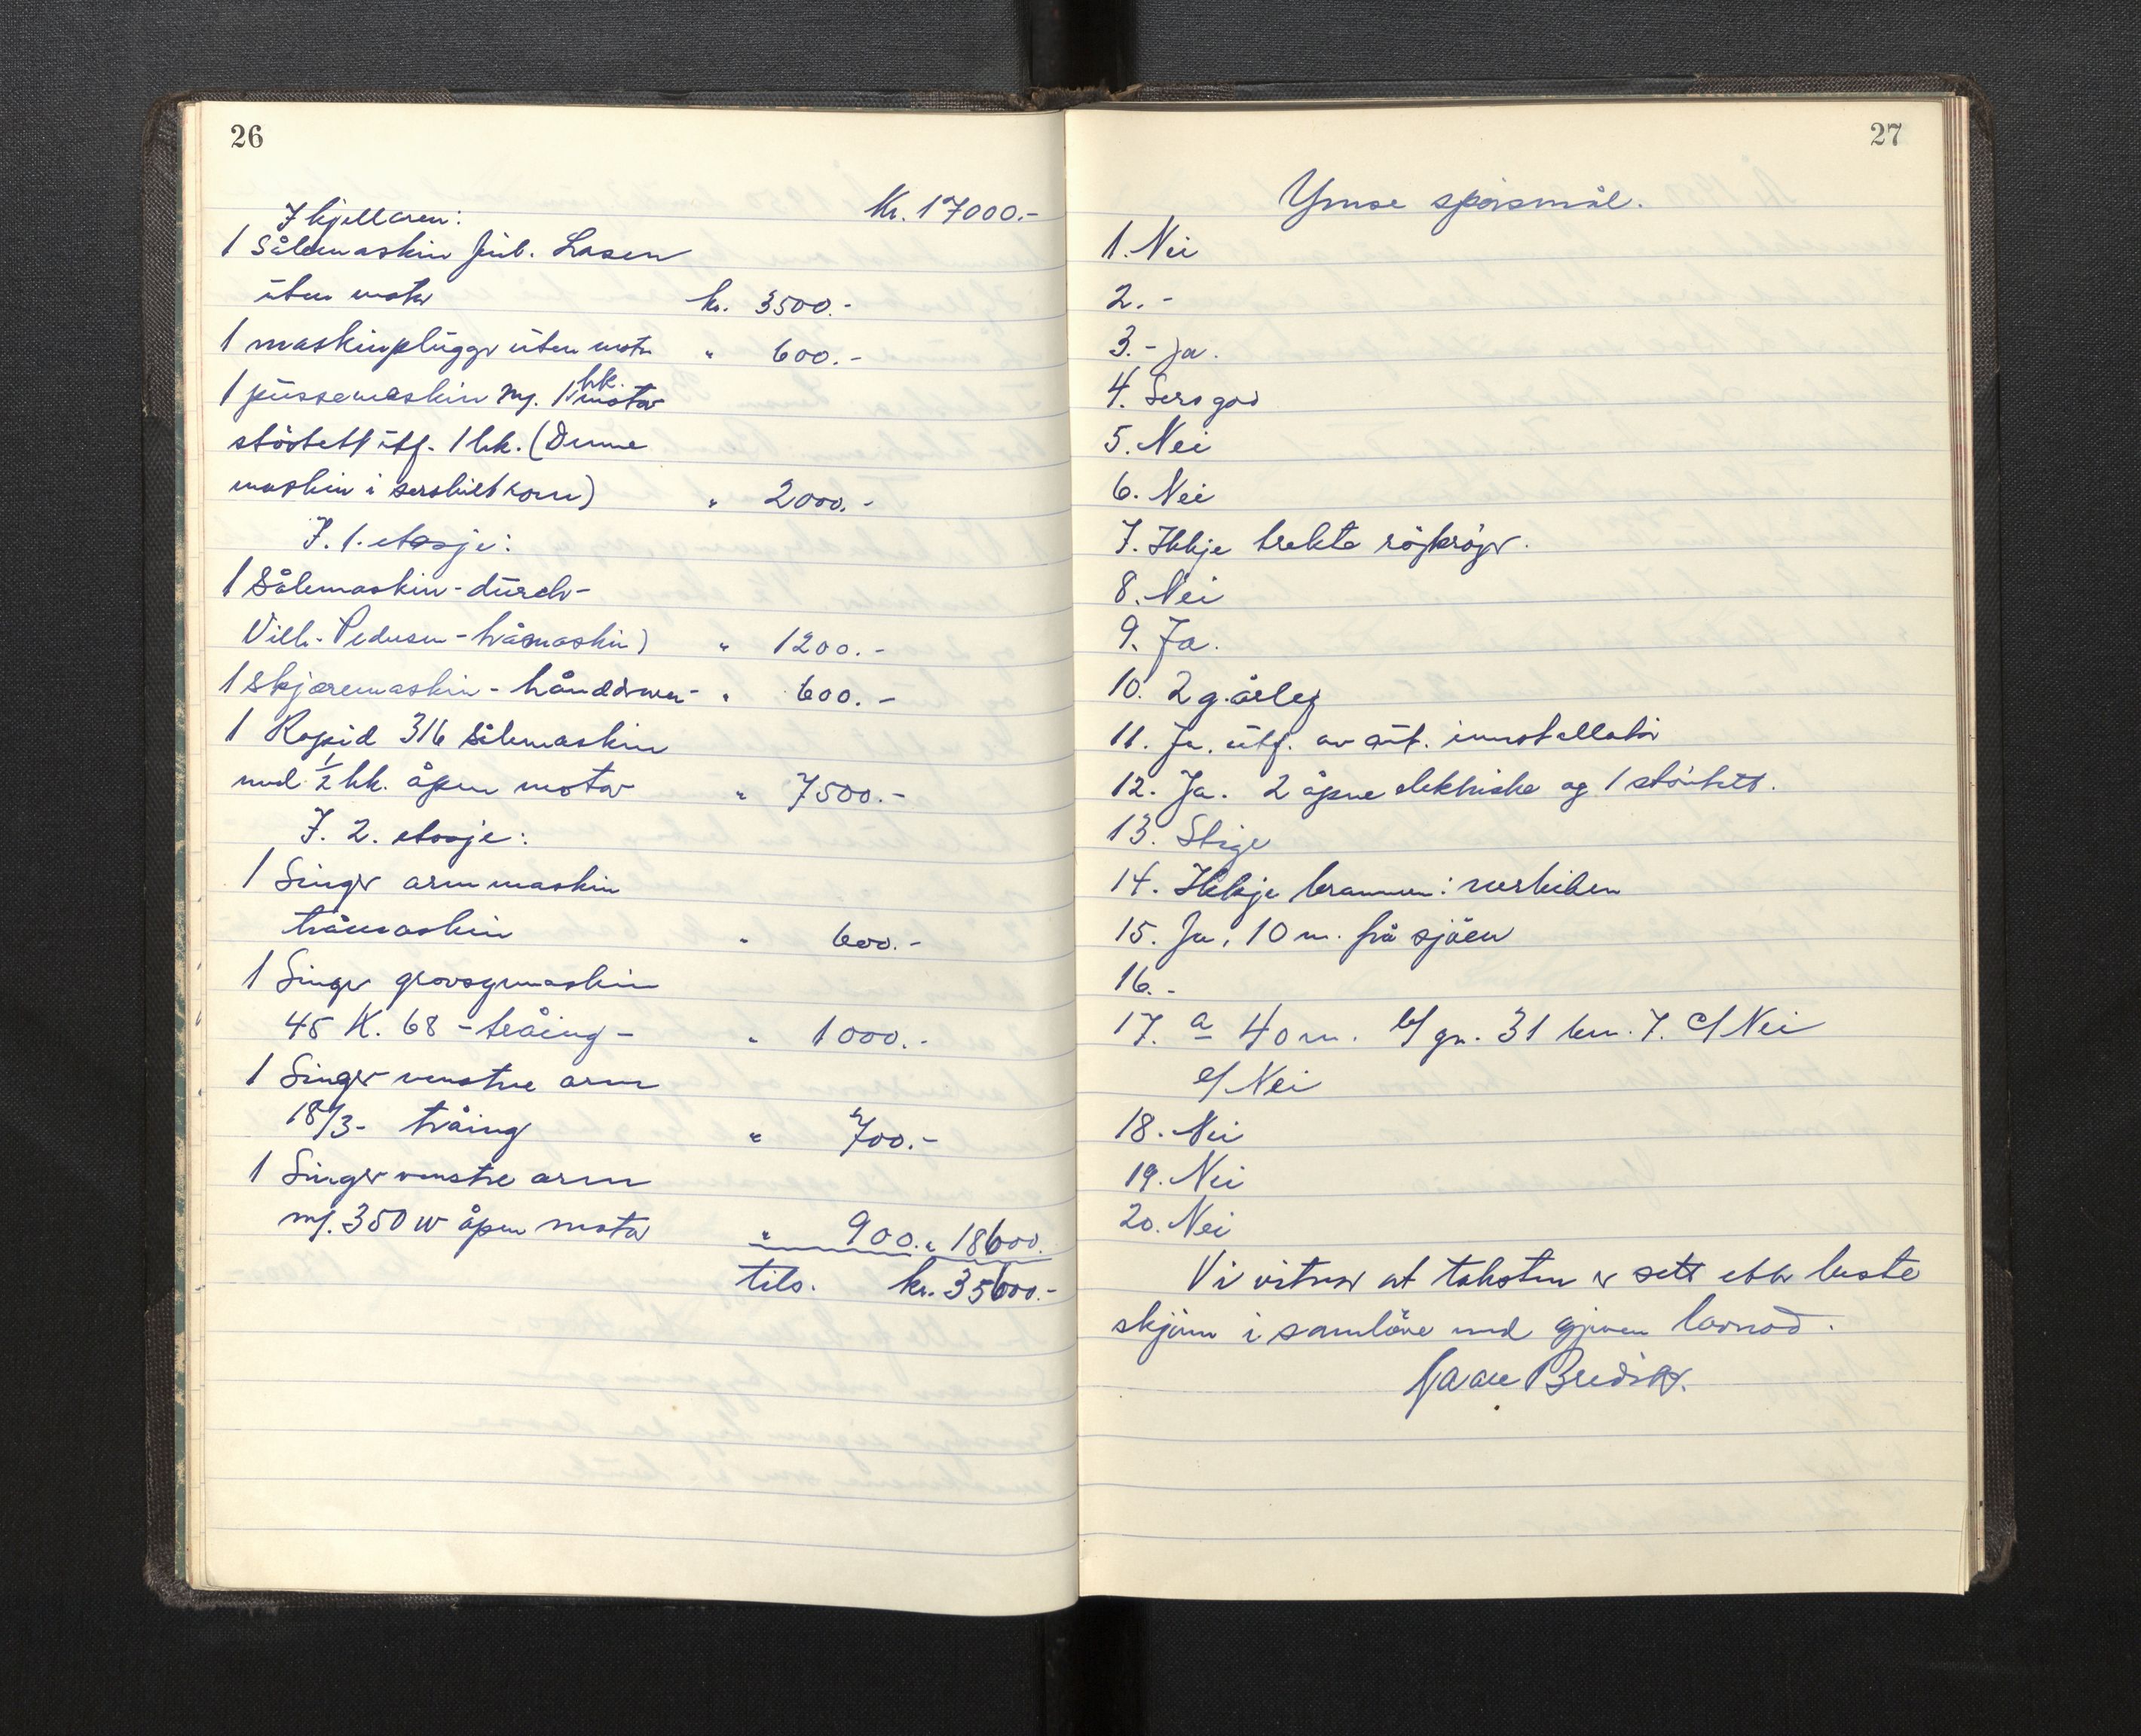 26
Kr. 17000.-
I kjellaren:
1 Sålemaskin
uten motor kr. 3500.-
1 maskinpluggar uten motor " 600.-
1 pussemaskin m/. 1 hk. motor
støvtett utf. 1 hk. (Denne
maskin i serskilt rom) " 2000.-
I. 1. etasje:
1 Sålemaskin - durch-
Vilh. Pedersen - tråmaskin) " 1200.-
1 skjæremaskin - hånddreven - " 600.-
1 Rapid 316 sålemaskin
med 1/2 hk. åpen motor " 7500.-
I. 2. etasje:
1 Singer arm maskin
tråmaskin " 600.-
1 Singer grovsymaskin
45 K. 68 - tråing - " 1000.-
1 Singer venstre arm
18/3- tråing " 700.-
1 Singer venstre arm
m/. 350 W åpen motor " 900. " 18600.
tils. kr. 35600.-
27
Ymse spørsmål.
1. Nei
2. -
3. - Ja.
4. Sers god
5. Nei
6. Nei
7. Ikkje trekte røykrøyr.
8. Nei
9. Ja.
10. 2 g. årleg
11. Ja. utf. av aut. innstallatør
12. Ja. 2 åpne elektriske og 1 støvtett.
13. Stige
14. Ikkje brannmur:
15. Ja, 10 m. frå sjøen
16. -
17. a 40 m. b/ gr. 31 km. 7. c/ Nei
e/ Nei
18. Nei
19. Nei
20. Nei
Vi vitnar at taksten er sett etter beste
skjønn i samhøve med gjeven lovnad.